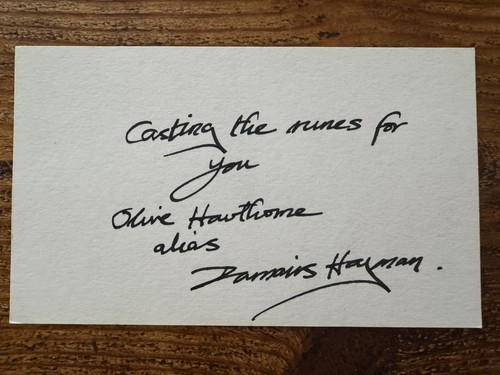 Casting the runes for
you
Olive Hawthorne
alias
Damaris Hayman.